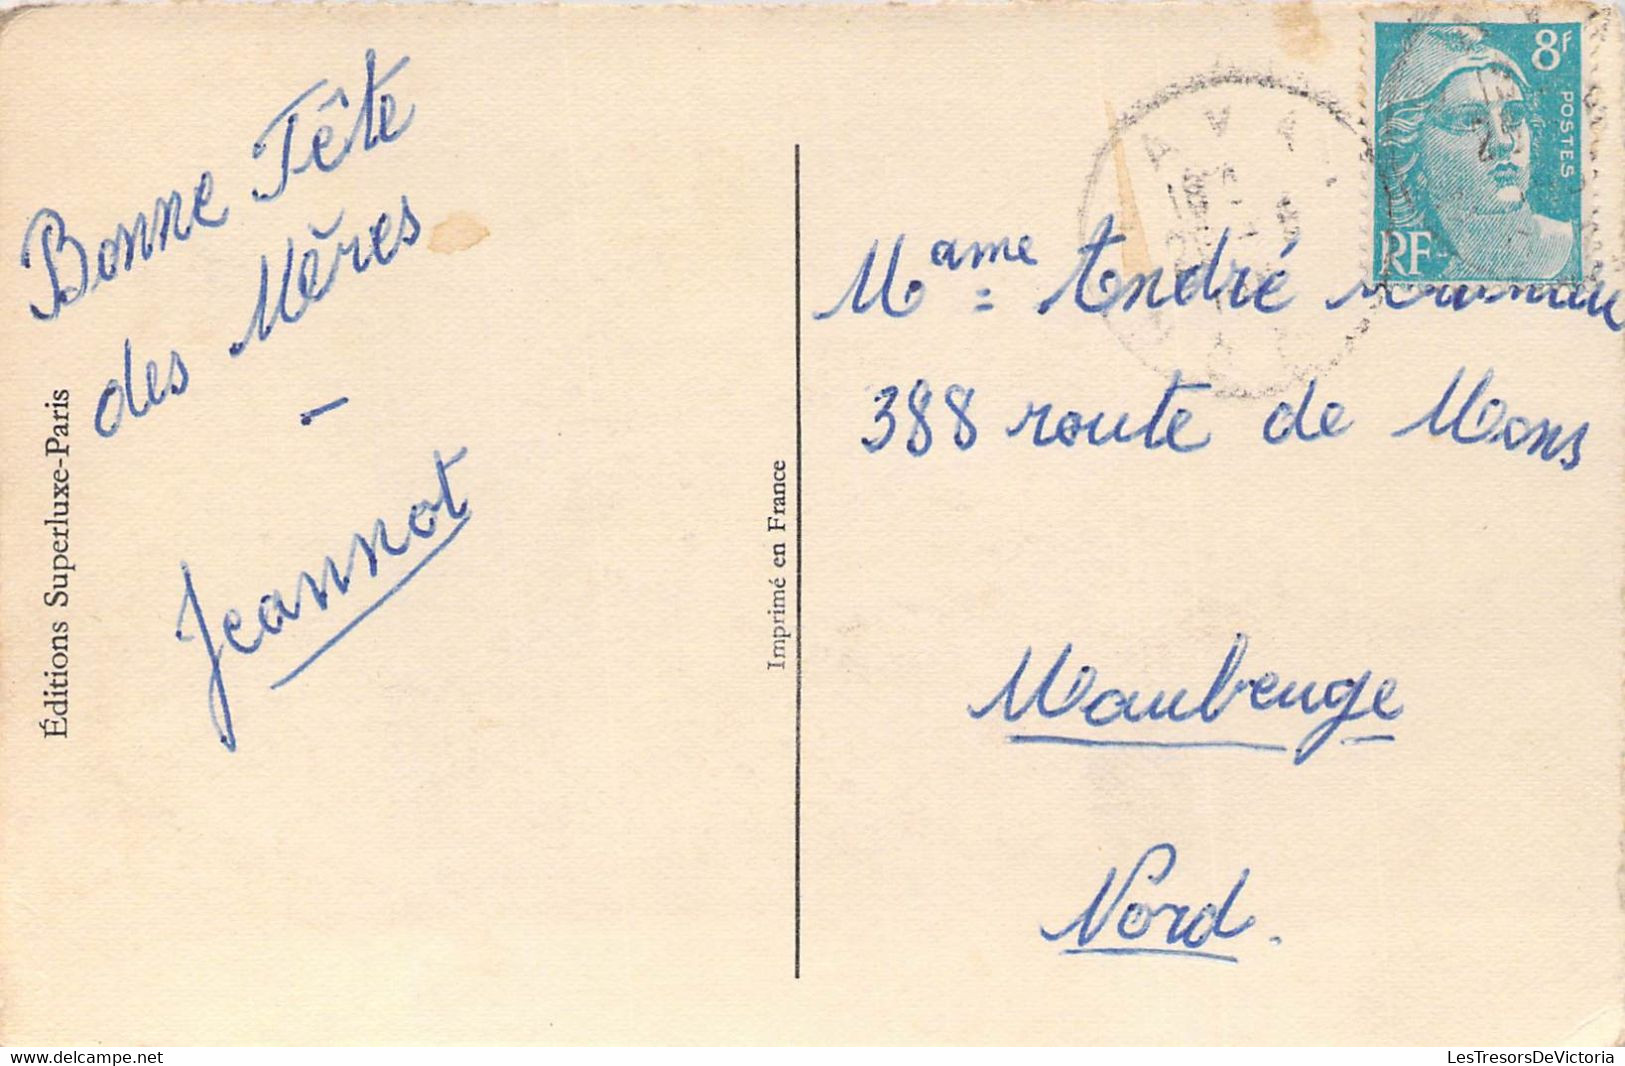 Bonne Fête
des Mères
-
Jeannot
Éditions Superluxe-Paris
Imprimé en France
8F
POSTES
RF
Mame = André
388 route de Mons
Maubeuge
Nord.
LesTresorsDeVictoria